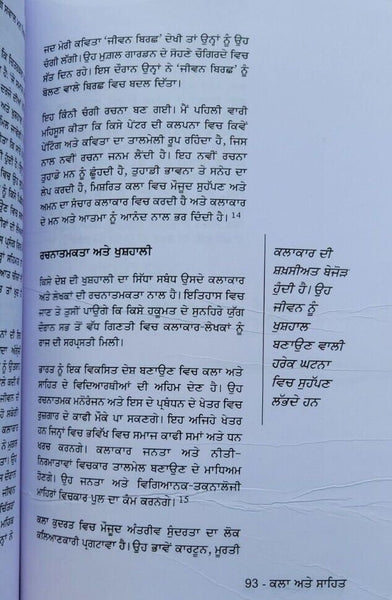 ਜਦ ਮੇਰੀ ਕਵਿਤਾ 'ਜੀਵਨ ਬਿਰਛ' ਦੇਖੀ ਤਾਂ ਉਨ੍ਹਾਂ ਨੂੰ ਉਹ
ਚੰਗੀ ਲੱਗੀ। ਉਹ ਮੁਗ਼ਲ ਗਾਰਡਨ ਦੇ ਸੋਹਣੇ ਚੌਗਿਰਦੇ ਵਿਚ
ਸੱਤ ਦਿਨ ਰਹੇ। ਇਸ ਦੌਰਾਨ ਉਨ੍ਹਾਂ ਨੇ 'ਜੀਵਨ ਬਿਰਛ' ਨੂੰ
ਬੋਲਣ ਵਾਲੇ ਬਿਰਛ ਵਿਚ ਬਦਲ ਦਿੱਤਾ।
ਇਹ ਕਿੰਨੀ ਚੰਗੀ ਰਚਨਾ ਬਣ ਗਈ। ਮੈਂ ਪਹਿਲੀ ਵਾਰੀ
ਮਹਿਸੂਸ ਕੀਤਾ ਕਿ ਕਿਸੇ ਪੇਂਟਰ ਦੀ ਕਲਪਨਾ ਵਿਚ ਕਿਵੇਂ
ਪੇਂਟਿੰਗ ਅਤੇ ਕਵਿਤਾ ਦਾ ਤਾਲਮੇਲੀ ਰੂਪ ਰਹਿੰਦਾ ਹੈ, ਜਿਸ
ਨਾਲ ਨਵੀਂ ਰਚਨਾ ਜਨਮ ਲੈਂਦੀ ਹੈ। ਇਹ ਨਵੀਂ ਰਚਨਾ
ਤੁਹਾਡੇ ਮਨ ਨੂੰ ਛੂੰਹਦੀ ਹੈ, ਤੁਹਾਡੀ ਭਾਵਨਾ ਤੇ ਸਨੇਹ ਦਾ
ਲੇਪ ਕਰਦੀ ਹੈ, ਮਿਸ਼ਰਿਤ ਕਲਾ ਵਿਚ ਮੌਜੂਦ ਸੁਹੱਪਣ ਅਤੇ
ਅਮਨ ਦਾ ਸੰਚਾਰ ਕਲਾਕਾਰ ਵਿਚ ਕਰਦੀ ਹੈ ਅਤੇ ਕਲਾਕਾਰ
ਦੇ ਮਨ ਅਤੇ ਆਤਮਾ ਨੂੰ ਆਨੰਦ ਨਾਲ ਭਰ ਦਿੰਦੀ ਹੈ। 14
ਰਚਨਾਤਮਕਤਾ ਅਤੇ ਖੁਸ਼ਹਾਲੀ
ਕਿਸੇ ਦੇਸ਼ ਦੀ ਖੁਸ਼ਹਾਲੀ ਦਾ ਸਿੱਧਾ ਸਬੰਧ ਉਸਦੇ ਕਲਾਕਾਰ
ਅਤੇ ਲੇਖਕਾਂ ਦੀ ਰਚਨਾਤਮਕਤਾ ਨਾਲ ਹੈ। ਇਤਿਹਾਸ ਵਿਚ
ਜਾਣ ਤੇ ਤੁਸੀਂ ਪਾਉਗੇ ਕਿ ਕਿਸੇ ਹਕੂਮਤ ਦੇ ਸੁਨਹਿਰੇ ਯੁੱਗ
ਦੌਰਾਨ ਸਭ ਤੋਂ ਵੱਧ ਗਿਣਤੀ ਵਿਚ ਕਲਾਕਾਰ-ਲੇਖਕਾਂ ਨੂੰ
ਰਾਜ ਦੀ ਸਰਪ੍ਰਸਤੀ ਮਿਲੀ।
ਭਾਰਤ ਨੂੰ ਇਕ ਵਿਕਸਿਤ ਦੇਸ਼ ਬਣਾਉਣ ਵਿਚ ਕਲਾ ਅਤੇ
ਸਾਹਿਤ ਦੇ ਵਿਦਿਆਰਥੀਆਂ ਦੀ ਅਹਿਮ ਦੇਣ ਹੈ। ਉਹ
ਰਚਨਾਤਮਕ ਮਨੋਰੰਜਨ ਅਤੇ ਇਸ ਦੇ ਪ੍ਰਬੰਧਨ ਦੇ ਖੇਤਰ ਵਿਚ
ਰੁਜ਼ਗਾਰ ਦੇ ਕਾਫੀ ਮੌਕੇ ਪਾ ਸਕਣਗੇ। ਇਹ ਅਜਿਹੇ ਖੇਤਰ
ਹਨ ਜਿਨ੍ਹਾਂ ਵਿਚ ਭਵਿੱਖ ਵਿਚ ਸਮਾਜ ਕਾਫੀ ਸਮਾਂ ਅਤੇ ਧਨ
ਖਰਚ ਕਰਨਗੇ। ਕਲਾਕਾਰ ਜਨਤਾ ਅਤੇ ਨੀਤੀ-
ਨਿਰਮਾਤਾਵਾਂ ਵਿਚਕਾਰ ਤਾਲਮੇਲ ਬਣਾਉਣ ਦੇ ਮਾਧਿਅਮ
ਹੋਣਗੇ। ਉਹ ਜਨਤਾ ਅਤੇ ਵਿਗਿਆਨਕ-ਤਕਨਾਲੋਜੀ
ਮਾਹਿਰਾਂ ਵਿਚਕਾਰ ਪੁਲ ਦਾ ਕੰਮ ਕਰਨਗੇ। 15
ਕਲਾ ਕੁਦਰਤ ਵਿਚ ਮੌਜੂਦ ਅੰਤਰੀਵ ਸੁੰਦਰਤਾ ਦਾ ਲੋਕ
ਕਲਿਆਣਕਾਰੀ ਪ੍ਰਗਟਾਵਾ ਹੈ। ਉਹ ਭਾਵੇਂ ਕਾਰਟੂਨ, ਮੂਰਤੀ
ਕਲਾਕਾਰ ਦੀ
ਸ਼ਖ਼ਸੀਅਤ ਬੇਜੋੜ
ਹੁੰਦੀ ਹੈ। ਉਹ
ਜੀਵਨ ਨੂੰ
ਖੁਸ਼ਹਾਲ
ਬਣਾਉਣ ਵਾਲੀ
ਹਰੇਕ ਘਟਨਾ
ਵਿਚ ਸੁਹੱਪਣ
ਲੱਭਦੇ ਹਨ
93 - ਕਲਾ ਅਤੇ ਸਾਹਿਤ